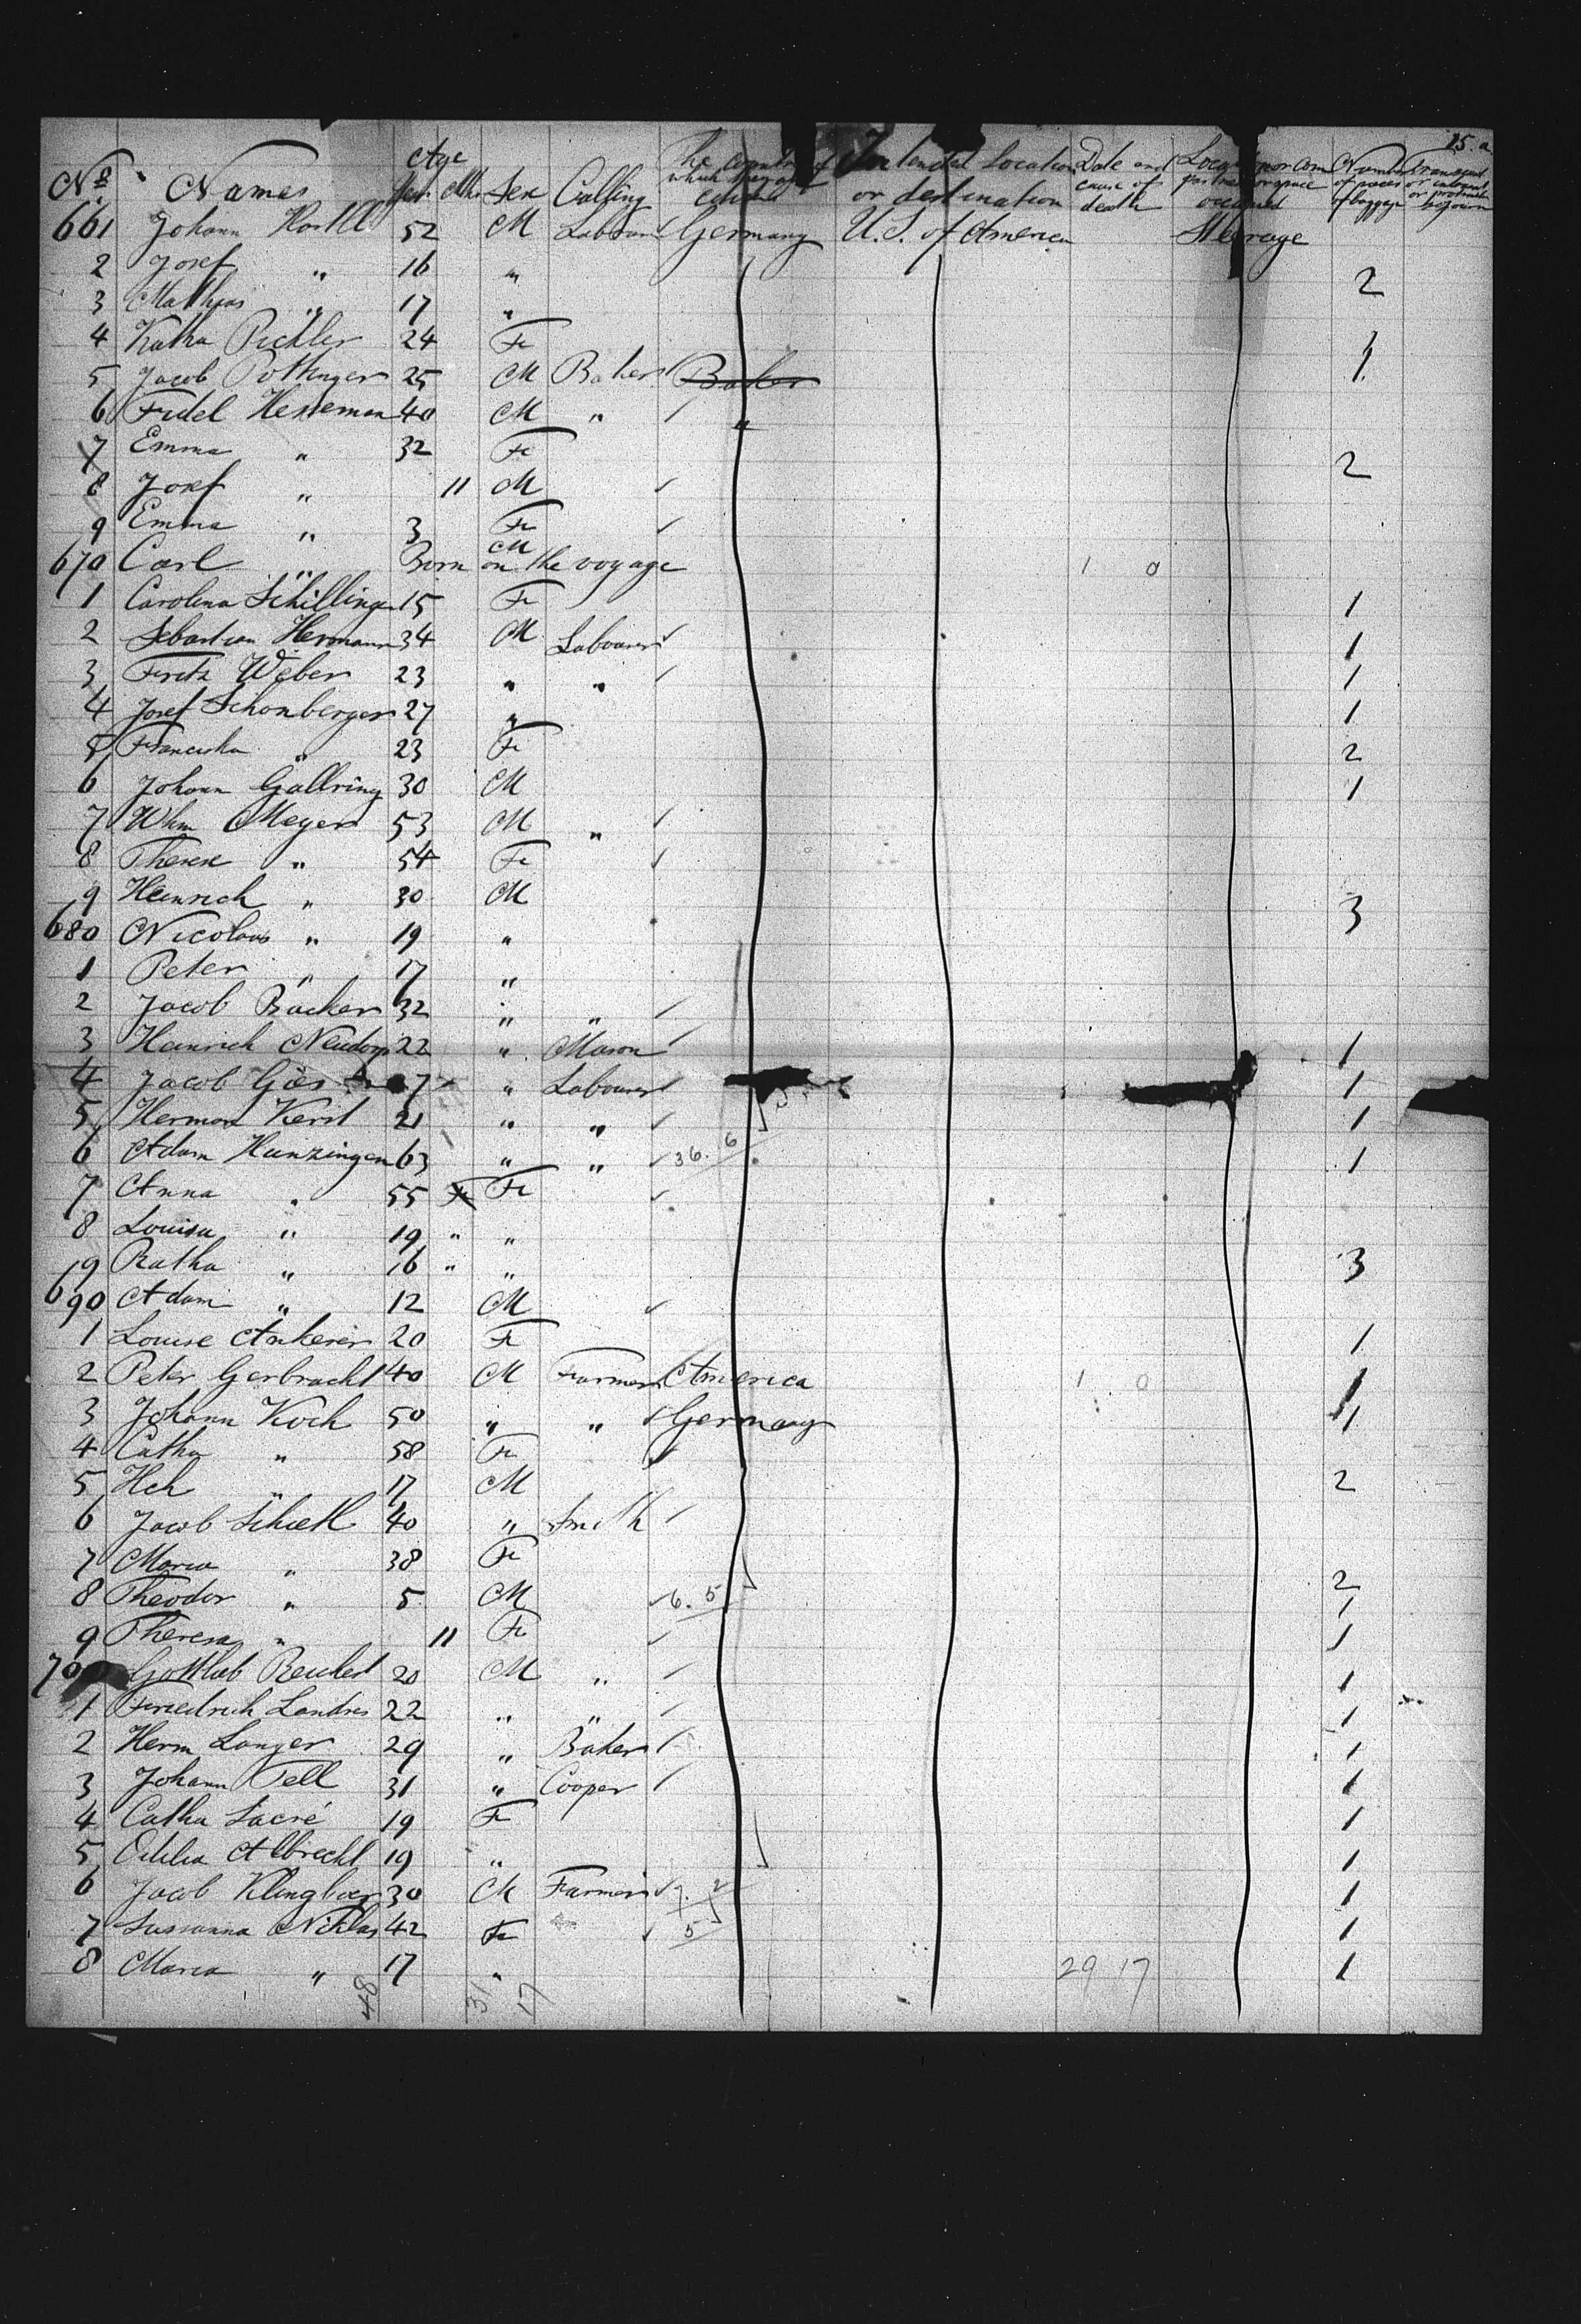 15. a
No. Names Age Years Mths Sex Calling The country of which they are citizens Intended Location or destination Date and cause of death Location of compartment or space occupied Number of pieces of baggage Transient, in transit or protracted sojourn
661 Johann 52 M Labourer Germany U.S. of America Steerage
2 Josef " 16 " 2
3 Mathias " 17 "
4 Katha Pichler 24 Fe 1
5 Jacob Pottinger 25 M Baker Baker 1
6 Fidel Hesseman 40 M " "
7 Emma " 32 Fe 2
8 Josef " 11 M
9 Emma " 3 Fe
670 Carl " Born on the voyage M 1 0
1 Carolina Schillinger 15 Fe 1
2 Sebastian Hermann 34 M Labourer 1
3 Fritz Weber 23 " " 1
4 Josef Schonberger 27 " 1
5 Franciska " 23 Fe 2
6 Johann Gallring 30 M 1
7 Whm Meyer 53 M "
8 Therese " 54 Fe
9 Heinrich " 30 M 3
680 Nicolaus " 19 "
1 Peter " 17 "
2 Jacob Backer 32 " "
3 Heinrich Neudorf 22 " Mason 1
4 Jacob 7 " Labourer 1
5 Herman Kerst 21 " " 1
6 Adam Hunzinger 63 " " 36. 6 1
7 Anna " 55 Fe Fe
8 Louisa " 19 " "
9 Ratha " 16 " " 3
690 Adam " 12 M
1 Louise Ankener 20 Fe 1
2 Peter Gerbracht 40 M Farmer America 1 0 1
3 Johann Koch 50 " " Germany 1
4 Catha " 58 Fe
5 Hch " 17 M 2
6 Jacob 40 " Smith
7 Maria " 38 Fe
8 Theodor " 5 M 6. 5 2
9 Theresa " 11 Fe 1
700 Gottlieb Reichert 20 M " 1
1 Friedrich Landres 22 " " 1
2 Herm Langer 29 " Baker 1
3 Johann Tell 31 " Cooper 1
4 Catha Sacré 19 Fe 1
5 Odilia Albrecht 19 " 1
6 Jacob Klingbeer 30 M Farmer 7. 2 1
7 Sussanna Niklas 42 Fe 5 1
8 Maria " 17 " 29 17 1
48 31 17